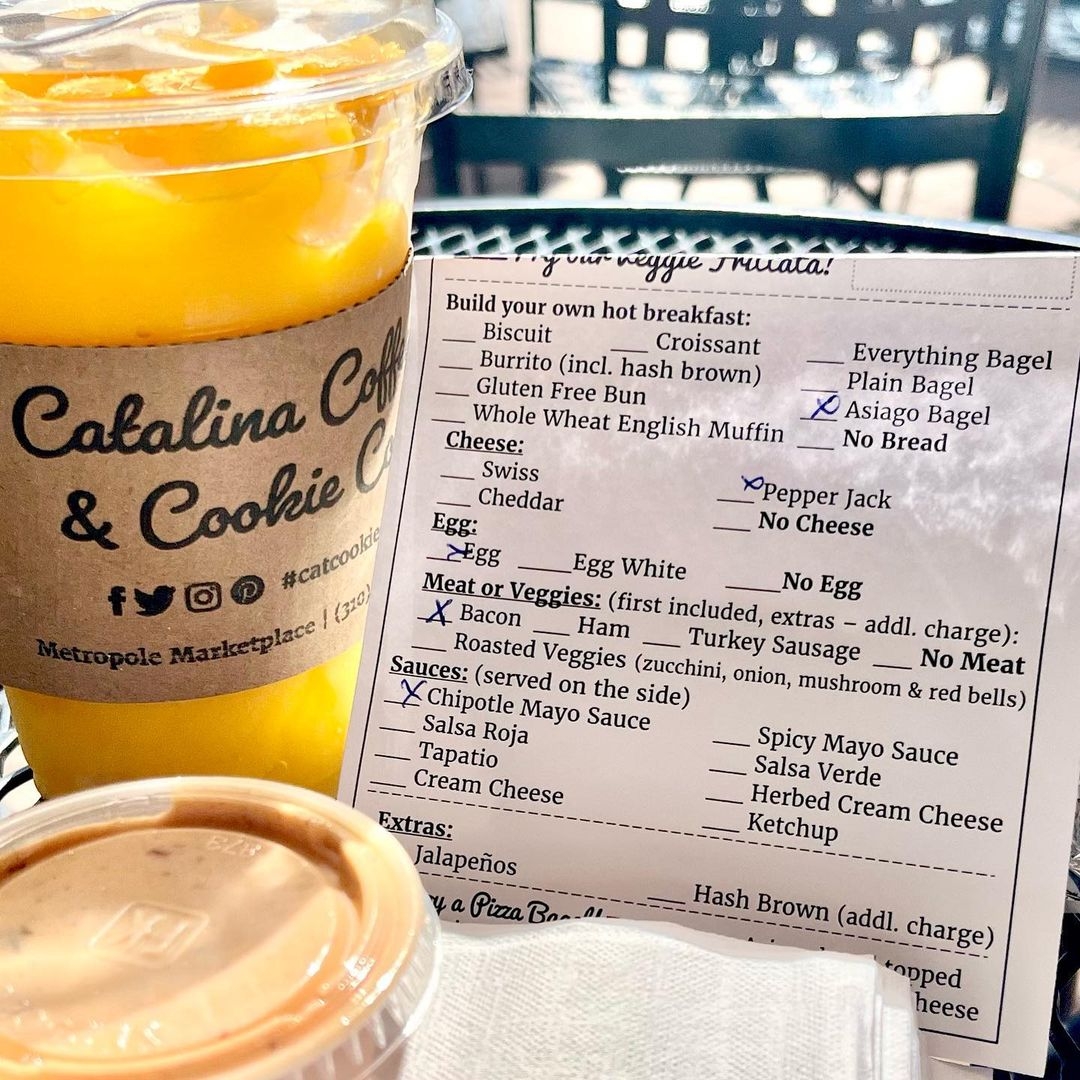 Catalina Coffe
& Cookie Co
#catcookie
Metropole Marketplace | (310)
Try our Veggie Frittata!
Build your own hot breakfast:
___ Biscuit ___ Croissant ___ Everything Bagel
___ Burrito (incl. hash brown) ___ Plain Bagel
___ Gluten Free Bun X Asiago Bagel
___ Whole Wheat English Muffin ___ No Bread
Cheese:
___ Swiss X Pepper Jack
___ Cheddar ___ No Cheese
Egg:
X Egg ___ Egg White ___ No Egg
Meat or Veggies: (first included, extras – addl. charge):
X Bacon ___ Ham ___ Turkey Sausage ___ No Meat
___ Roasted Veggies (zucchini, onion, mushroom & red bells)
Sauces: (served on the side)
X Chipotle Mayo Sauce ___ Spicy Mayo Sauce
___ Salsa Roja ___ Salsa Verde
___ Tapatio ___ Herbed Cream Cheese
___ Cream Cheese ___ Ketchup
Extras:
Jalapeños ___ Hash Brown (addl. charge)
a Pizza
topped
heese